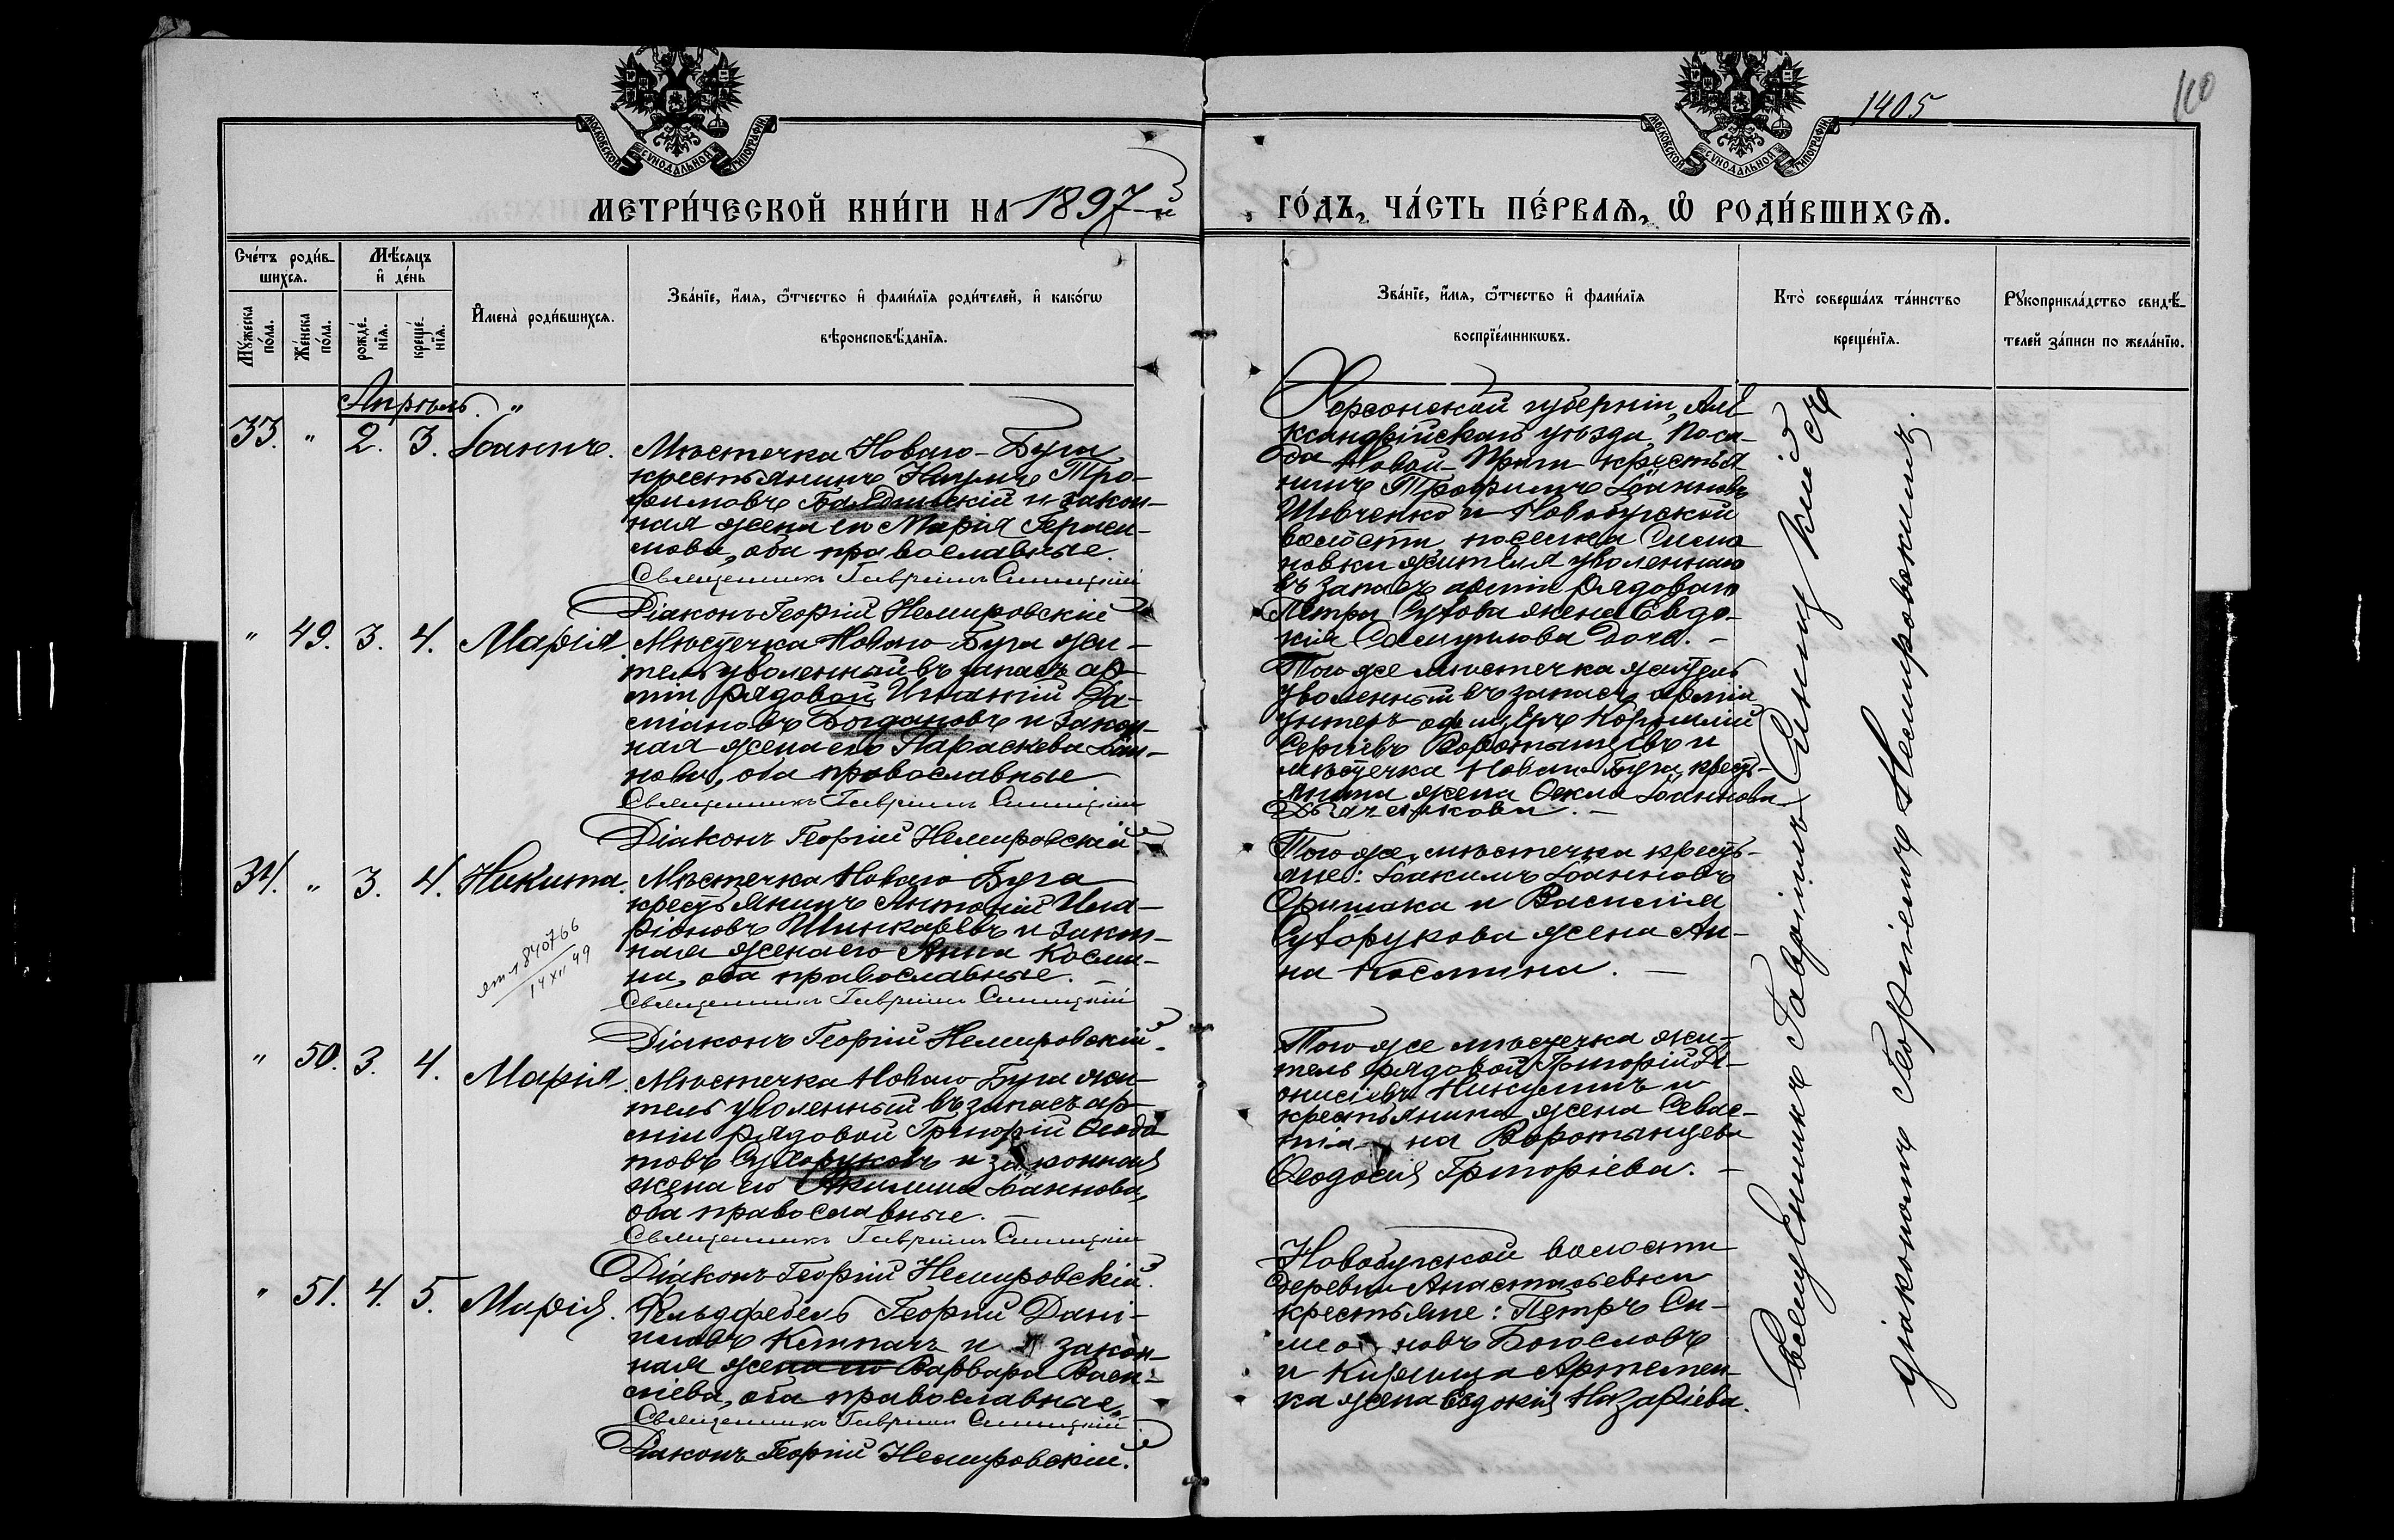 1405
МОСКОВСКОЙ СѴНОДАЛЬНОЙ ТИПОГРАФІИ
МОСКОВСКОЙ СѴНОДАЛЬНОЙ ТИПОГРАФІИ
МЕТРИ́ЧЕСКОЙ КНИ́ГИ НА 1897-й
ГО́ДЪ, ЧА́СТЬ ПЕ́РВАЯ, Ѽ РОДИ́ВШИХСЯ.
Сче́тъ роди́в-
шихся.
Мѣ́сяцъ
и҆ де́нь
Мꙋ́жеска
по́ла.
Же́нска
по́ла.
рожде́-
нїя.
креще́-
нїя.
И҆мена̀ роди́вшихся.
Зва́нїе, и҆́мя, ѻ҆́тчество и҆ фами́лїя роди́телей, и҆ како́гѡ
вѣроисповѣ́данїя.
Зва́нїе, и҆́мя, ѻ҆́тчество и҆ фами́лїя
воспрїе́мникѡвъ.
Кто̀ соверша́лъ та́инство
креще́нїя.
Рꙋкоприкла́дство свидѣ́-
телей за́писи по жела́нїю.
Апрѣль. "
33. " 2. 3. Іоаннъ.
Мѣстечка Новаго-Буга
крестьянинъ Наумъ Тро-
фимовъ и закон-
ная жена его Марія Гераси-
мова, оба православные.
Священникъ Гавріилъ Синицкій
Діаконъ Георгій Немировскій
Херсонской губерніи, Але-
ксандрійскаго уѣзда, поса-
да Новой-Праги крестья-
нинъ Трофимъ Іоанновъ
Шевченко и Новобугской
волости поселка Симо-
новки жителя уволеннаго
въ запасъ арміи рядоваго
Петра жена Евдо-
кія Самуилова дочь. -
" 49. 3. 4. Марія.
Мѣстечка Новаго-Буга жи-
тель уволенный въ запасъ ар-
міи рядовой Игнатій Да-
міановъ Богдановъ и закон-
ная жена его Параскева Іоан-
нова, оба православные
Священникъ Гавріилъ Синицкій
Діаконъ Георгій Немировскій
Того же мѣстечка житель
уволенный въ запасъ арміи
унтеръ-офицеръ Корнилій
Сергіевъ Воротынцевъ и
мѣстечка Новаго-Буга кресть-
янина жена Ѳекла Іоаннова
Дьяченкова. -
34. " 3. 4. Никита.
Мѣстечка Новаго Буга
крестьянинъ Антоній Ила-
ріоновъ Шинкаревъ и закон-
ная жена его Анна Косми-
на, оба православные.
Священникъ Гавріилъ Синицкій
Діаконъ Георгій Немировскій.
840766
14 XII 49
Того же мѣстечка кресть-
яне: Іоакимъ Іоанновъ
и Василія
Сухорукова жена Ан-
на Космина. -
" 50. 3. 4. Марія.
Мѣстечка Новаго Буга жи-
тель уволенный въ запасъ ар-
міи рядовой Григорій Ѳеодо-
товъ Сухоруковъ и законная
жена его Акилина Іоаннова,
оба православные. -
Священникъ Гавріилъ Синицкій
Діаконъ Георгій Немировскій.
Того же мѣстечка жи-
тель рядовой Григорій Ді-
онисіевъ Никулинъ и
крестьянина жена Севас-
тіана Воротынцева
Ѳеодосія Григоріева. -
" 51. 4. 5. Марія.
Фельдфебель Георгій Дани-
иловъ и закон-
ная жена его Варвара Васи-
ліева, оба православные.
Священникъ Гавріилъ Синицкій
Діаконъ Георгій Немировскій.
Новобугской волости
деревни Анастасьевки
крестьяне: Петръ Си-
меоновъ Богословъ
и Кирилла Артемен-
ка жена Евдокія Назаріева.
Священникъ Гавріилъ Синицкій съ
діакономъ Георгіемъ Немировскимъ.